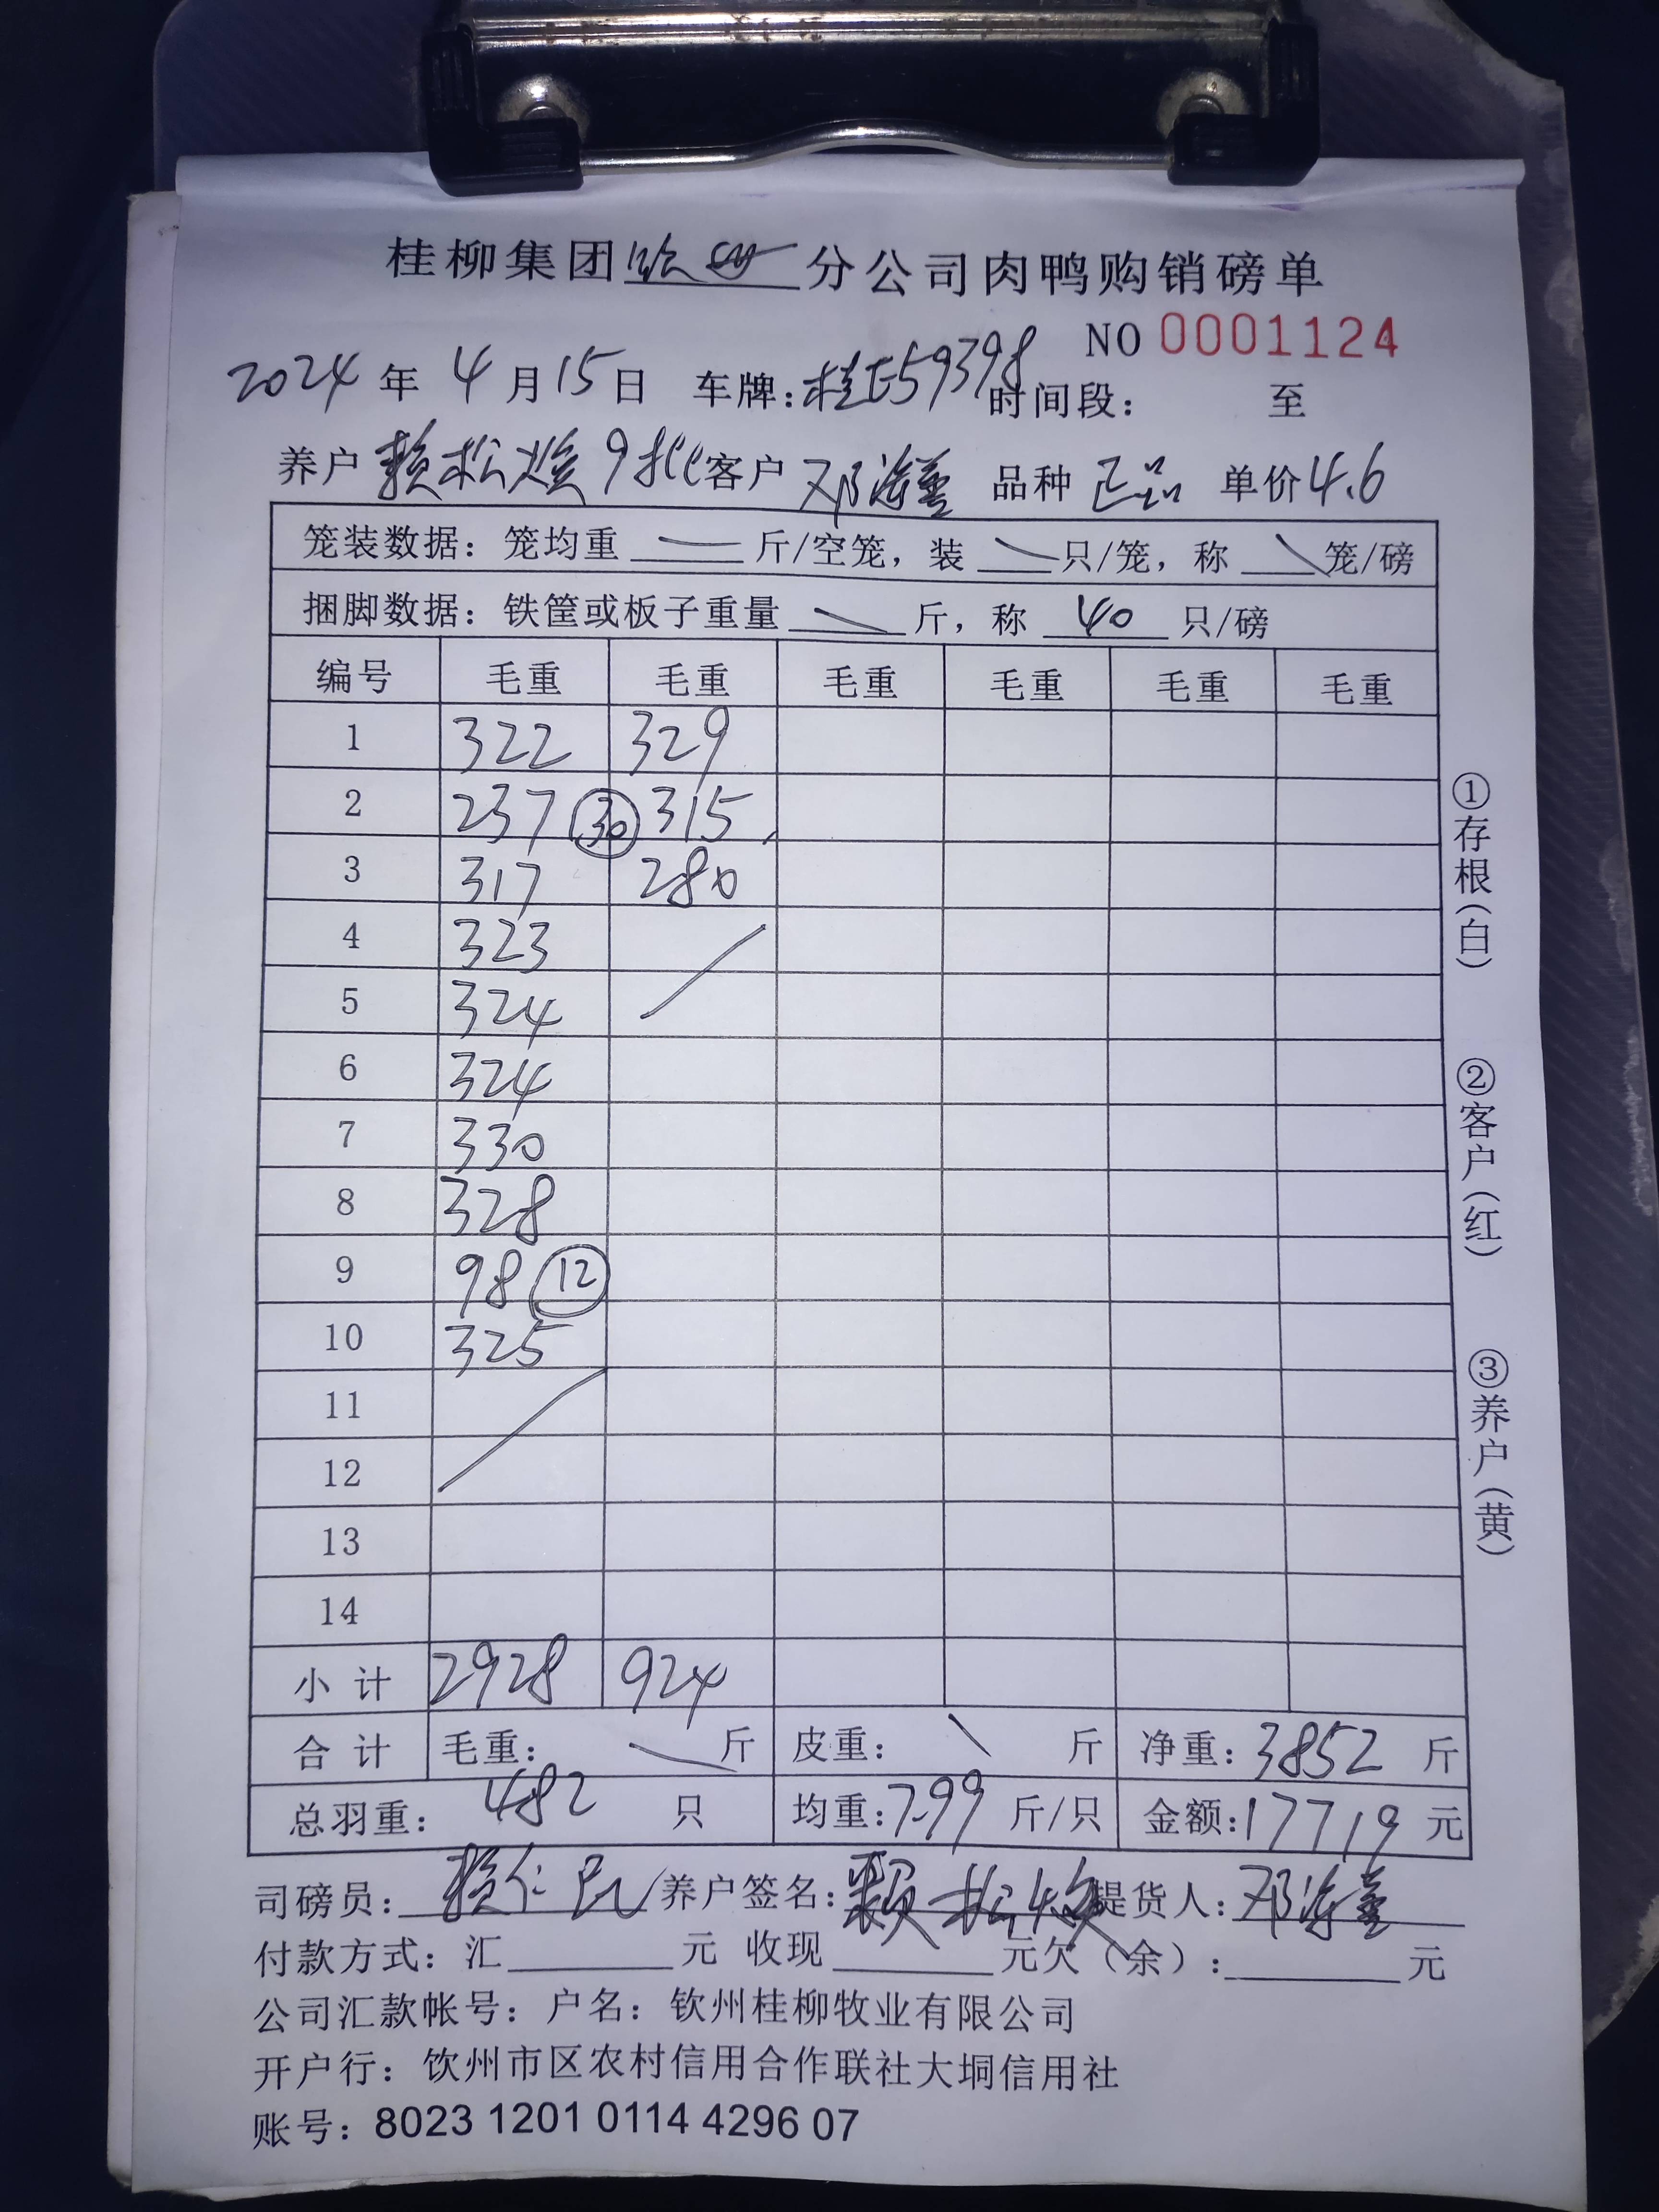 桂柳集团 分公司肉鸭购销磅单
NO 0001124
2024年4月15日 车牌:桂E59398 时间段: 至
养户 赖松焕 9批 客户 邓海鑫 品种 正品 单价4.6
笼装数据: 笼均重 斤/空笼, 装 只/笼, 称 笼/磅
捆脚数据: 铁筐或板子重量 斤, 称 40 只/磅
编号 毛重 毛重 毛重 毛重 毛重 毛重
1 322 329
2 237 30 315
3 317 280
4 323
5 324
6 324
7 330
8 328
9 98 12
10 325
11
12
13
14
小计 2928 924
合计 毛重: 斤 皮重: 斤 净重:3852 斤
总羽重: 482 只 均重:7.99 斤/只 金额:17719 元
司磅员: 养户签名:赖松焕 提货人:邓海鑫
付款方式: 汇 元 收现 元欠(余): 元
公司汇款帐号: 户名: 钦州桂柳牧业有限公司
开户行: 钦州市区农村信用合作联社大垌信用社
账号: 8023 1201 0114 4296 07
①存根(白)
②客户(红)
③养户(黄)